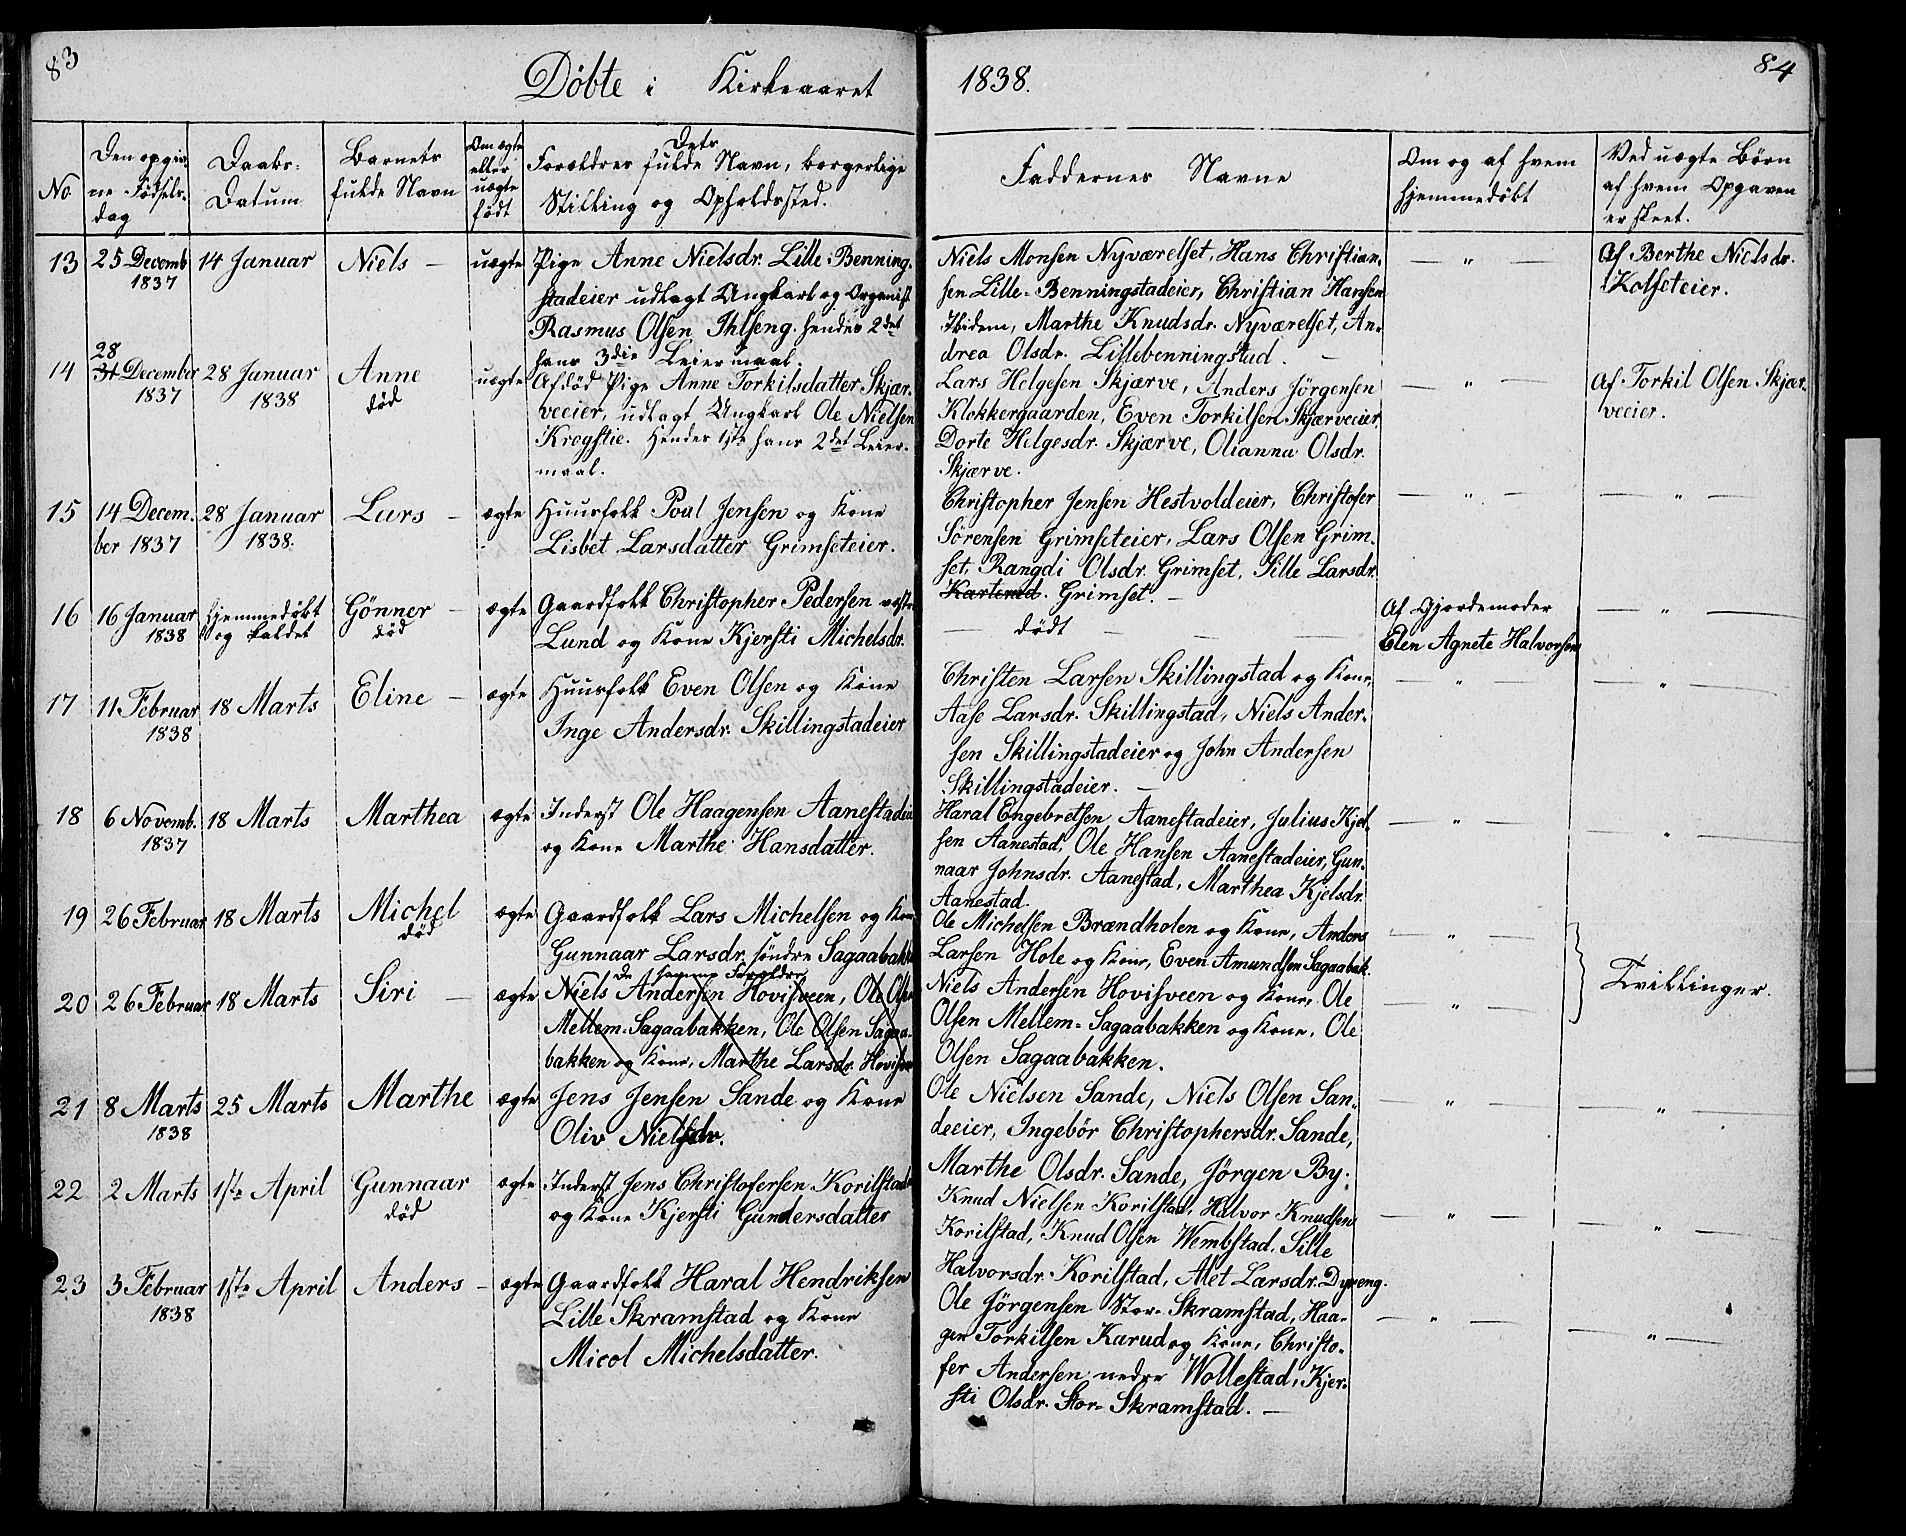 83
Döbte i Kirkeaaret
1838.
84
No
Den opgiv-
ne Födsels-
dag
Daabs-
Datum
Barnets
fulde Navn
Om ægte
eller
uægte
födt
Dets
Forældres fulde Navn, borgerlige
Stilling og Opholdssted.
Faddernes Navne
Om og af hvem
hjemmedöbt
Ved uægte Börn
af hvem Opgaven
er skeet.
13
25 Decemb
1837
14 Januar
Niels —
uægte
Pige Anne Nielsdr. Lille-Benning-
stadeier udlagt Ungkarl og Organist
Rasmus Olsen Ihlseng. hendes 2det
hans 3die Leiermaal.
Niels Monsen Nyværelset, Hans Christian-
sen Lille-Benningstadeier, Christian Hansen
Ibidem, Marthe Knudsdr. Nyværelset, An-
drea Olsdr. Lillebenningstad. —
— " —
Af Berthe Nielsdr.
Kolseteier.
14
28
31 December
1837
28 Januar
1838
Anne
död
uægte
Afdöd Pige Anne Torkilsdatter Skjær-
veeier, udlagt Ungkarl Ole Nielsen
Krogstie. Hendes 1ste hans 2det Leier-
maal.
Lars Helgesen Skjærve, Anders Jörgensen
Klokkergaarden, Even Torkilsen Skjærveeier,
Dorte Helgesdr. Skjærve, Olianna Olsdr.
Skjærve.
— " —
Af Torkil Olsen Skjær-
veeier.
15
14 Decem-
ber 1837
28 Januar
1838.
Lars —
ægte
Huusfolk Poul Jensen og Kone
Lisbet Larsdatter Grimseteier.
Christopher Jensen Hestvoldeier, Christofer
Sörensen Grimseteier, Lars Olsen Grim-
set, Rangdi Olsdr. Grimset, Sille Larsdr.
Grimset. —
— " —
— " —
16
16 Januar
1838
hjemmedöbt
og kaldet
Gönner —
död
ægte
Gaardfolk Christopher Pedersen vestre
Lund og Kone Kjersti Michelsdr.
— dödt — — —
Af Gjordemoder
Elen Agnete Halvorsen
— " —
17
11 Februar
1838
18 Marts
Eline —
ægte
Huusfolk Even Olsen og Kone
Inge Andersdr. Skillingstadeier
Christen Larsen Skillingstad og Kone,
Aase Larsdr. Skillingstad, Niels Ander-
sen Skillingstadeier og John Andersen
Skillingstadeier. —
— " —
— " —
18
6 Novemb.
1837
18 Marts
Marthea
ægte
Inderst Ole Haagensen Aanestadeier
og Kone Marthe Hansdatter.
Haral Engebretsen Aanestadeier, Julius Kjel-
sen Aanestad, Ole Hansen Aanestadeier, Gun-
naar Johnsdr. Aanestad, Marthea Kjelsdr.
Aanestad.
— " —
— " —
19
26 Februar
18 Marts
Michel
död
ægte
Gaardfolk Lars Michelsen og Kone
Gunnaar Larsdr. söndre Sagaabakken
Ole Michelsen Brændholen og Kone, Anders
Larsen Hole og Kone, Even Amundsen Sagaabak.
— " —
Tvillinger.
20
26 Februar
18 Marts
Siri —
ægte
De samme Forældre
Niels Andersen Hovisveen, Ole Olsen
Mellem-Sagaabakken, Ole Olsen Sagaa-
bakken og Kone, Marthe Larsdr. Hovisveen
Niels Andersen Hovisveen og Kone, Ole
Olsen Mellem-Sagaabakken og Kone, Ole
Olsen Sagaabakken.
— " —
21
8 Marts
1838
25 Marts
Marthe
ægte
Jens Jensen Sande og Kone
Oliv Nielsdr.
Ole Nielsen Sande, Niels Olsen San-
deeier, Ingebör Christophersdr. Sande,
Marthe Olsdr. Sande, Jörgen By.
— " —
— " —
22
2 Marts
1ste April
Gunnaar
död
ægte
Inderst Jens Christofersen Korilstad
og Kone Kjersti Gundersdatter
Knud Nielsen Korilstad, Halvor Knudsen
Korilstad, Knud Olsen Wembstad, Sille
Halvorsdr. Korilstad, Alet Larsdr. Dyreng.
— " —
— " —
23
3 Februar
1838
1ste April
Anders —
ægte
Gaardfolk Haral Hendriksen
Lille Skramstad og Kone
Micol Michelsdatter.
Ole Jörgensen Stor-Skramstad, Haa-
gen Torkilsen Karud og Kone, Christo-
fer Andersen nedre Wollestad, Kjer-
sti Olsdr. Stor-Skramstad. —
— " —
— " —